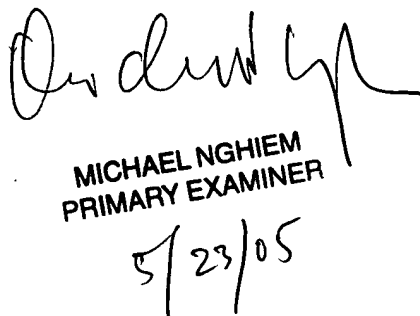 MICHAEL NGHIEM
PRIMARY EXAMINER
5/23/05